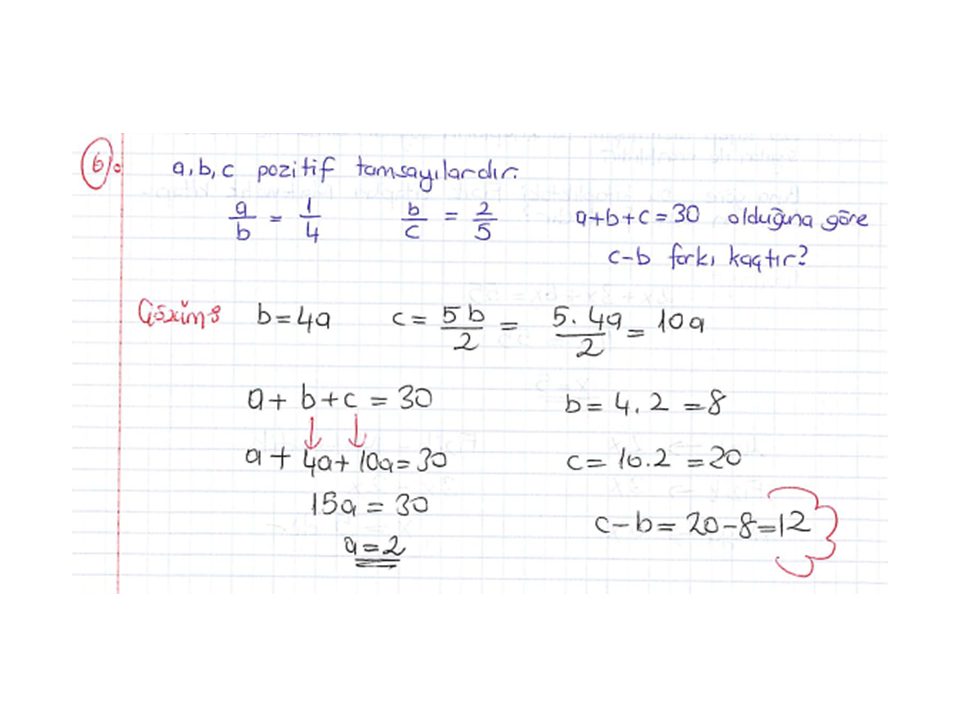 6). a,b,c pozitif tamsayılardır.
a/b = 1/4 b/c = 2/5 a+b+c=30 olduğuna göre
c-b farkı kaçtır?
Çözüm: b=4a c= 5b/2 = 5.4a/2 = 10a
a+ b+c = 30
b= 4.2 =8
a+ 4a+ 10a=30
c= 10.2 =20
15a = 30
c-b= 20-8=12
a=2